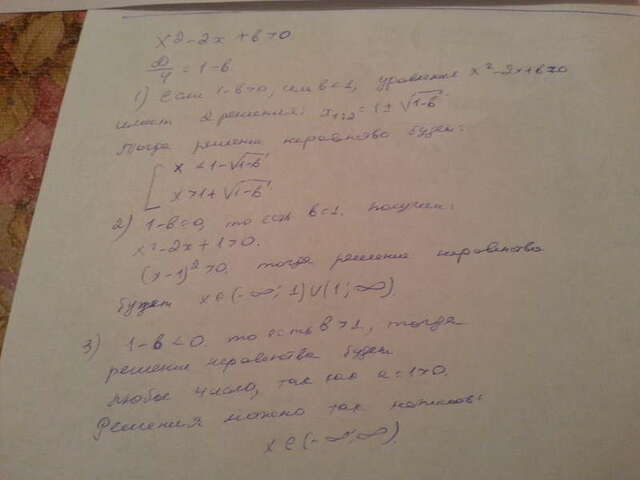 x² - 2x + b > 0
D/4 = 1 - b
1) если 1-b>0, или b<1, уравнение x²-2x+b=0
имеет 2 решения, x₁,₂ = 1 ± √1-b.
Тогда решением неравенства будет:
[ x < 1 - √1-b
x > 1 + √1-b
2) 1-b=0, то есть b=1. получим:
x² - 2x + 1 > 0.
(x-1)² > 0, тогда решением неравенства
будет x ∈ (-∞; 1) ∪ (1; ∞)
3) 1-b < 0. то есть b>1, тогда
решением неравенства будет
любое число, так как a = 1 > 0.
Решения можно так написать:
x ∈ (-∞; ∞)